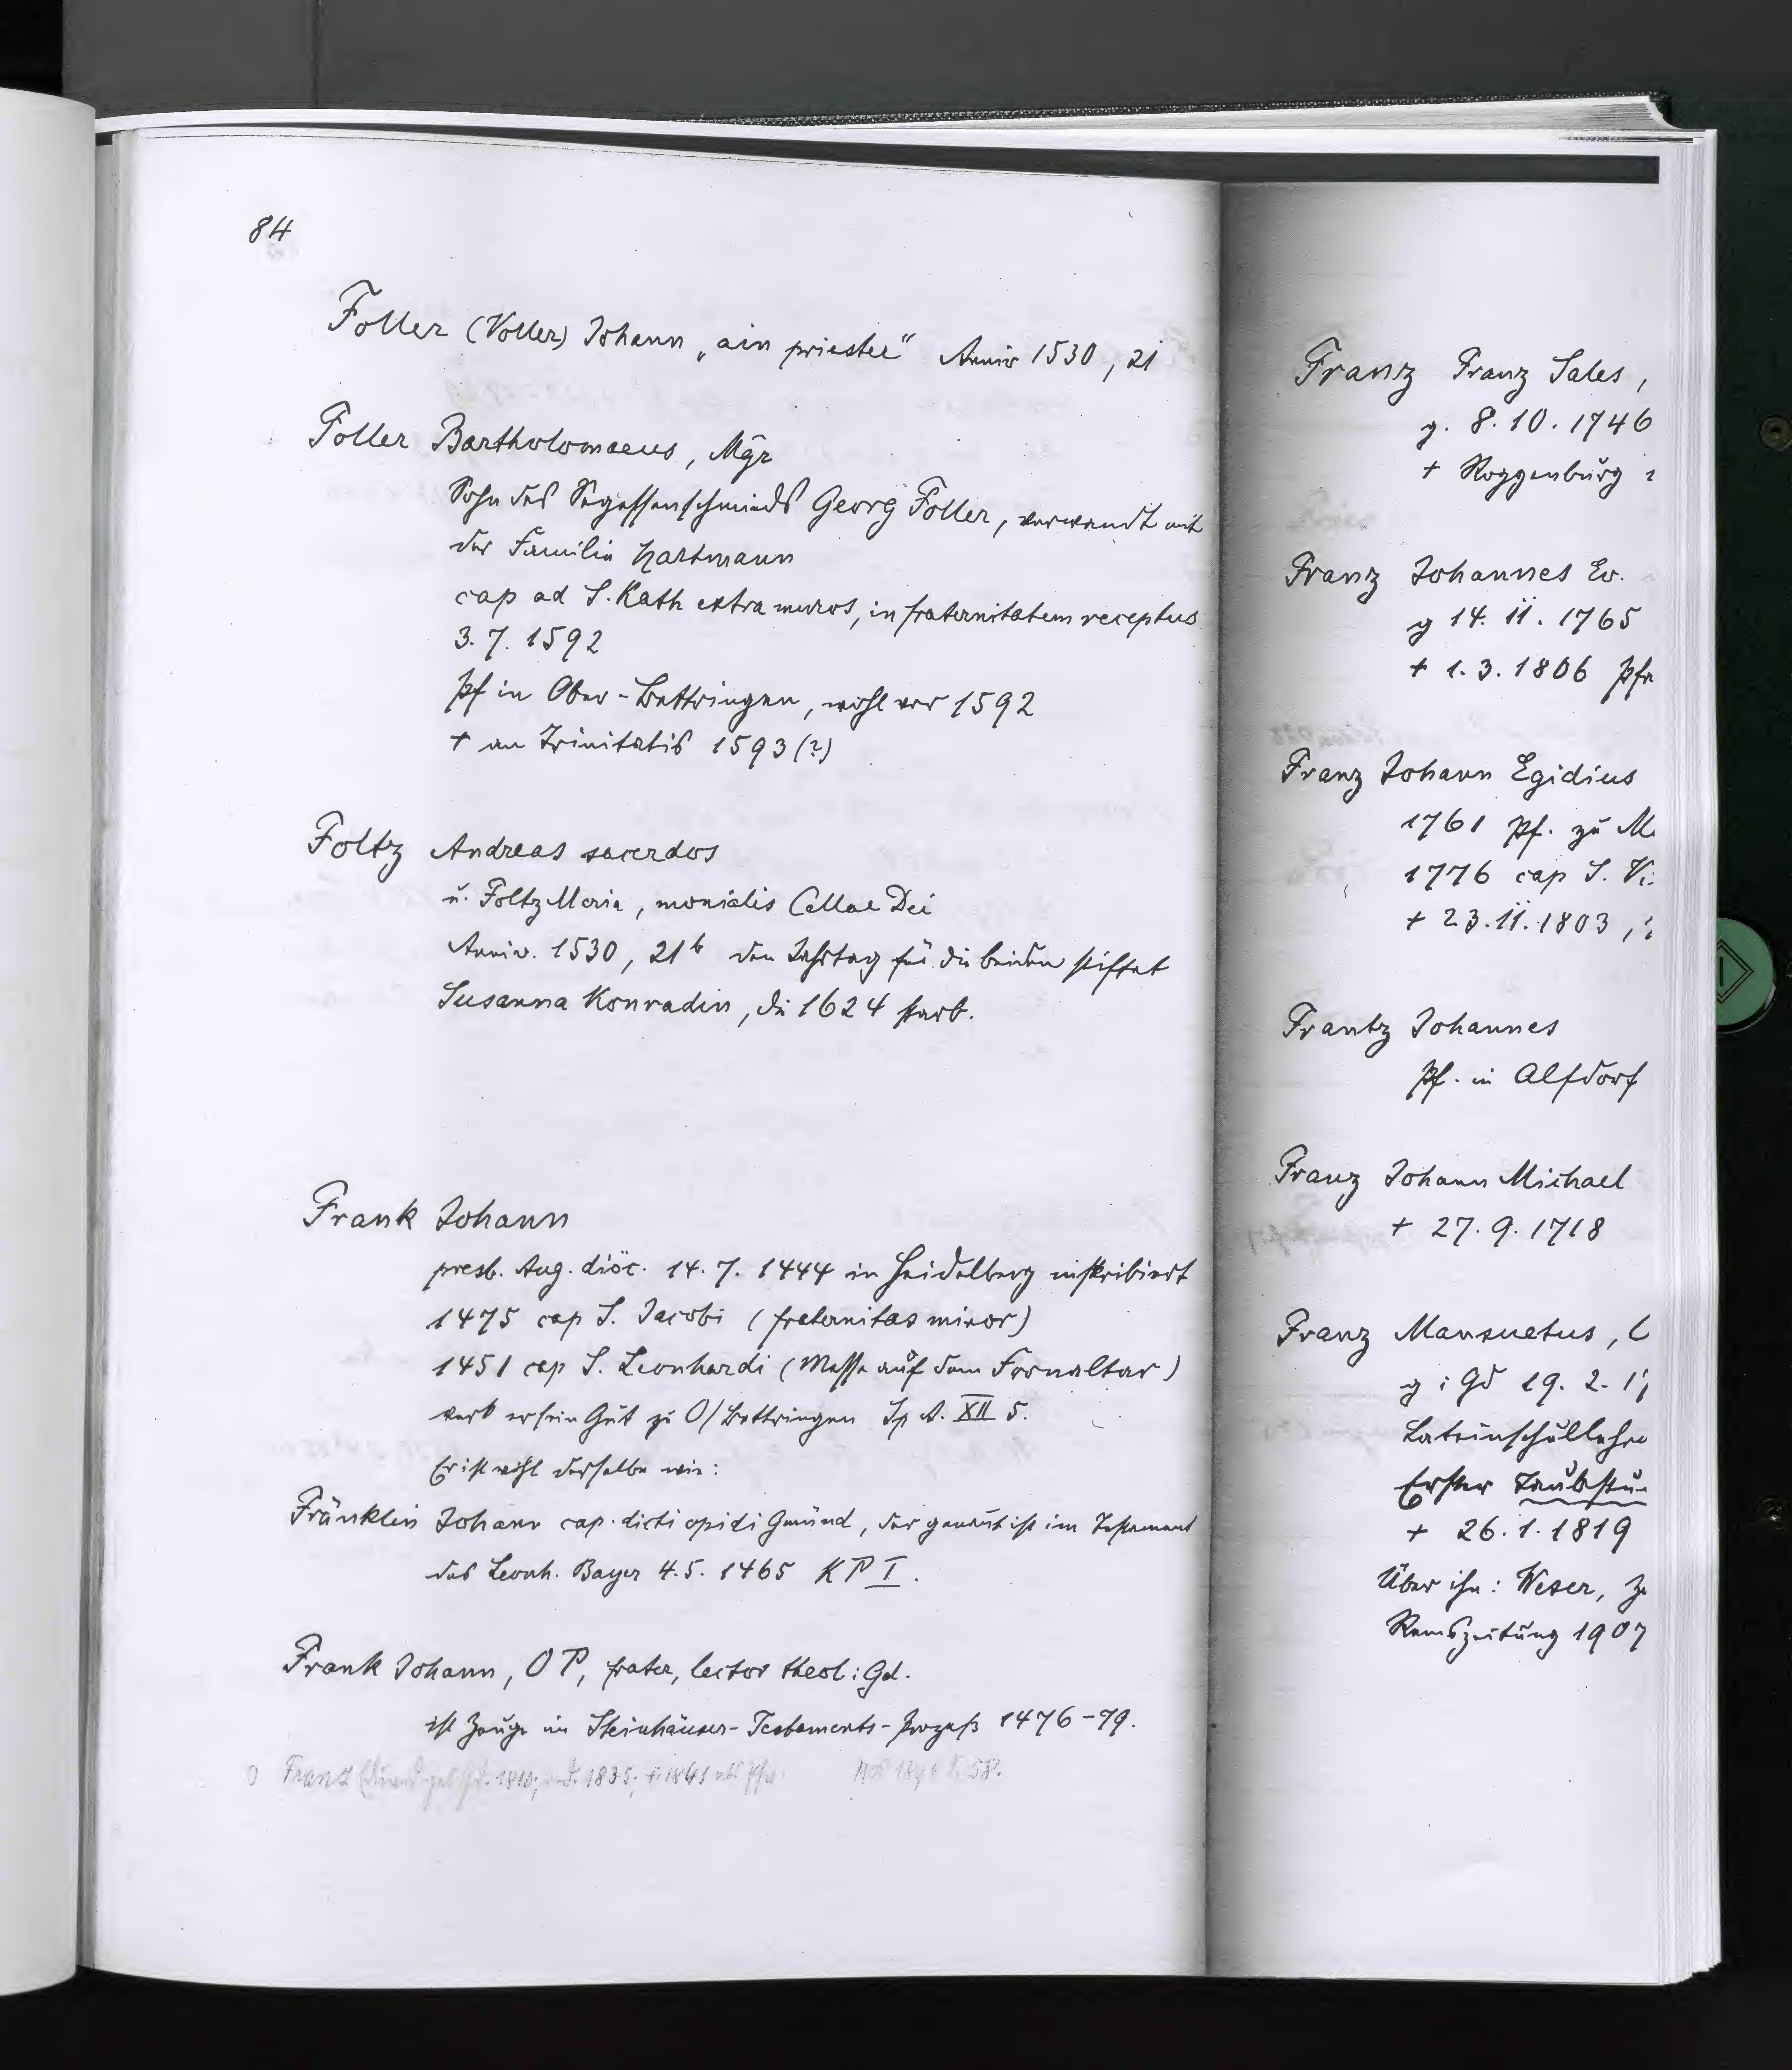 84
Foller (Voller) Johann „ain priester" Anniv 1530, 21
Foller Bartholomaeus, Mgr
Sohn des Segessenschmieds Georg Foller, verwandt mit
der Familie Hartmann
cap ad S. Kath extra muros, in fraternitatem receptus
3. 7. 1592
Pf in Ober-Bettringen, wohl vor 1592
+ an Trinitatis 1593 (?)
Foltz Andreas sacerdos
u. Foltz Maria, monialis Cellae Dei
Anniv. 1530, 21b den Jahrtag für die beiden stiftet
Susanna Konradin, die 1624 starb.
Frank Johann
presb. Aug. diöc. 14. 7. 1444 in Heidelberg inskribiert
1475 cap S. Jacobi (fraternitas minor)
1451 cap S. Leonhardi (Messe auf dem Fronaltar)
verk er sein Gut zu O/Bettringen Sp A. XII 5.
Er ist wohl derselbe wie:
Fränklin Johann cap. dicti opidi Gmünd, der genannt ist im Testament
des Leonh. Bayer 4. 5. 1465 KP I.
Frank Johann, OP, frater, lector theol i Gd.
ist Zeuge im Steinhäuser-Testaments-Prozeß 1476-79.
Franz
Franz Franz Sales,
g. 8. 10. 1746
+ Roggenburg
Franz Johannes Ev.
g 14. 11. 1765
+ 1. 3. 1806 Pfr
Franz Johann Egidius
1761 Pf. zu M
1776 cap S. Vi
+ 23. 11. 1803,
Frantz Johannes
Pf. in Alfdorf
Franz Johann Michael
+ 27. 9. 1718
Franz Mansuetus,
g i Gd 19. 2. 17
Lateinschullehre
Erster Taubstu
+ 26. 1. 1819
Über ihn: Weser,
Remszeitung 1907